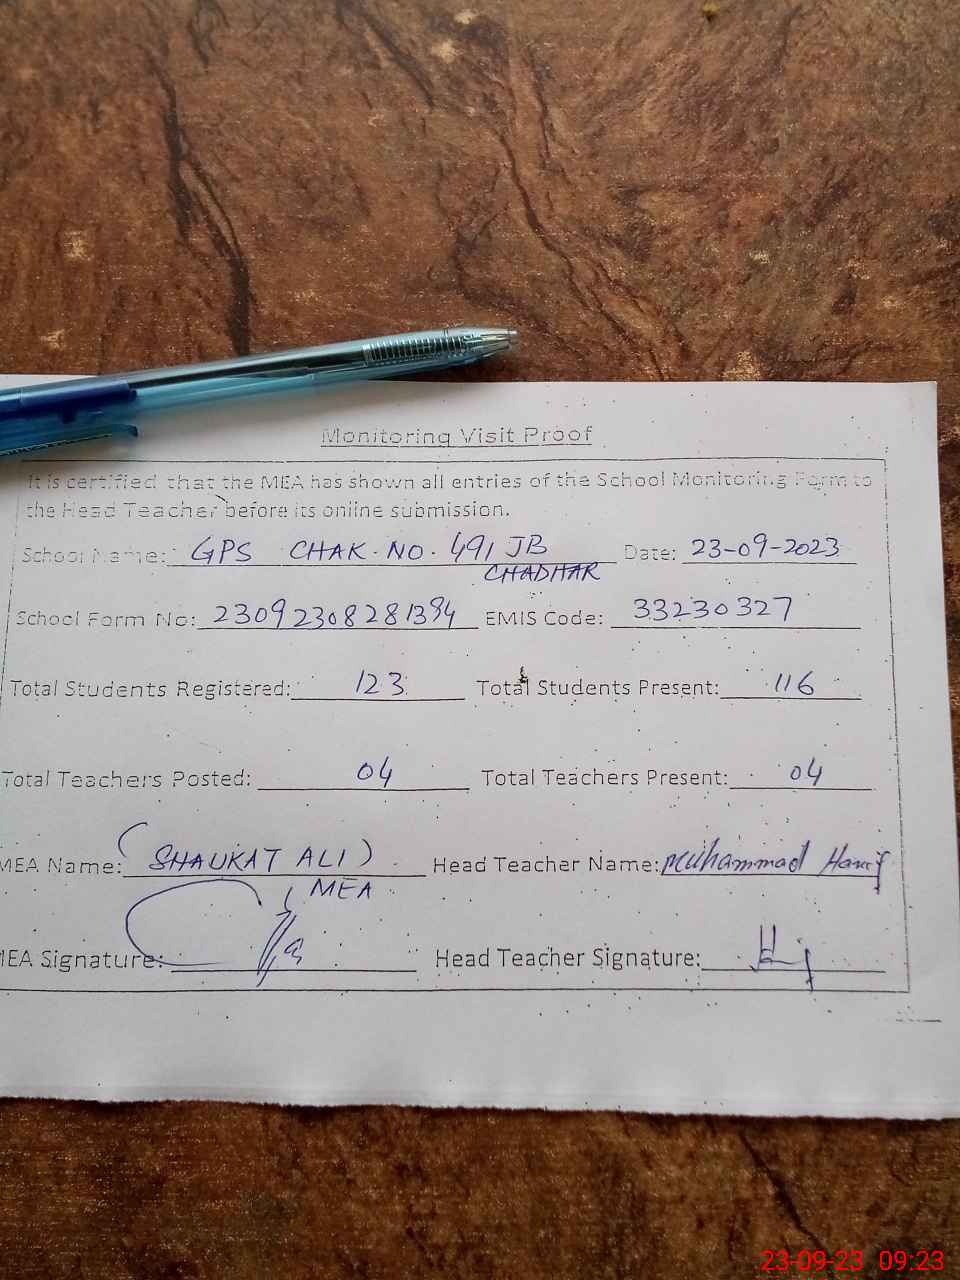 Monitoring Visit Proof
It is certified that the MEA has shown all entries of the School Monitoring Form to
the Head Teacher before its online submission.
School Name: GPS CHAK. NO. 491 JB Date: 23-09-2023
CHADHAR
School Form No: 23092308281394 EMIS Code: 33230327
Total Students Registered: 123 Total Students Present: 116
Total Teachers Posted: 04 Total Teachers Present: 04
MEA Name: (SHAUKAT ALI) Head Teacher Name: Muhammad Hanif
MEA
MEA Signature: Head Teacher Signature:
23-09-23 09:23